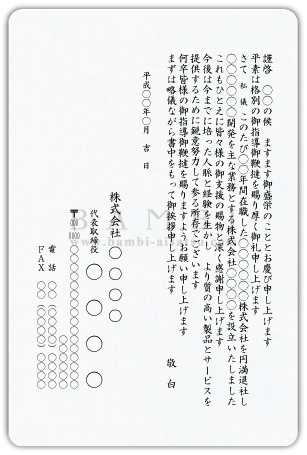 謹啓　○○の候　ますます御盛栄のこととお慶び申し上げます
平素は格別の御指導御鞭撻を賜り厚く御礼申し上げます
さて　私儀　このたび○○年間在職した○○○○○株式会社を円満退社し
○○○○○開発を主な業務とする株式会社○○○○を設立いたしました
これもひとえに皆々様の御支援の賜物と深く感謝申し上げます
今後は今までに培った人脈と経験を生かし　より質の高い製品とサービスを
提供するために鋭意努力して参る所存でございます
何卒皆様の御指導御鞭撻を賜りますようお願い申し上げます
まずは略儀ながら書中をもって御挨拶申し上げます
敬白
平成○○年○月　吉日
株式会社　○○○○
代表取締役　○○　○○
電話
FAX
BAMBI